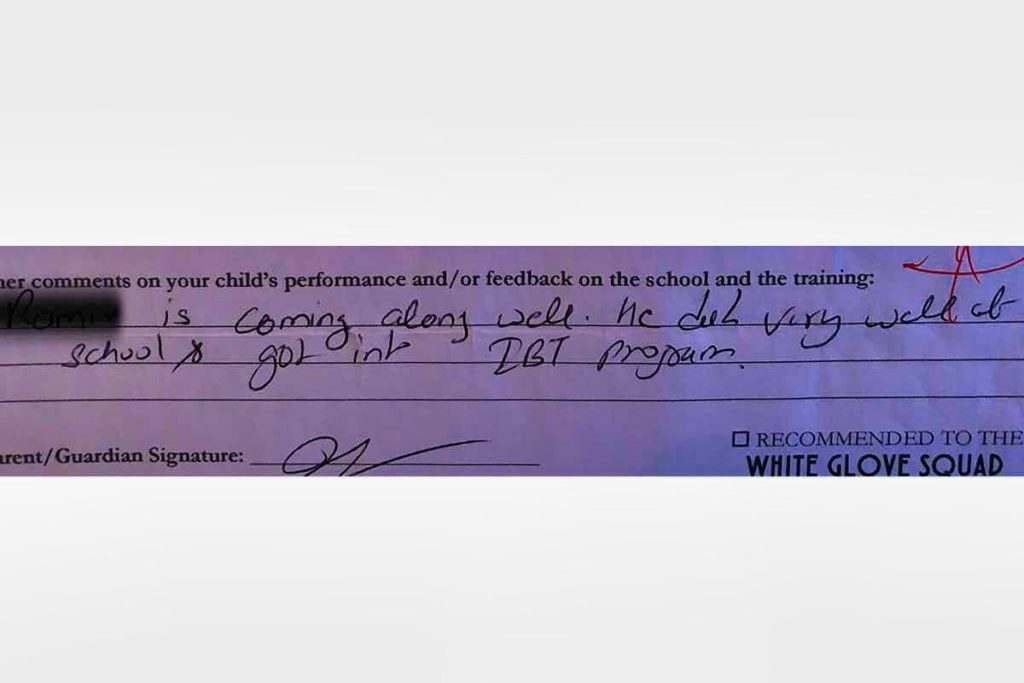 her comments on your child's performance and/or feedback on the school and the training:
is coming along well. He did very well at
school & got into IBT program.
arent/Guardian Signature:
☐ RECOMMENDED TO THE
WHITE GLOVE SQUAD